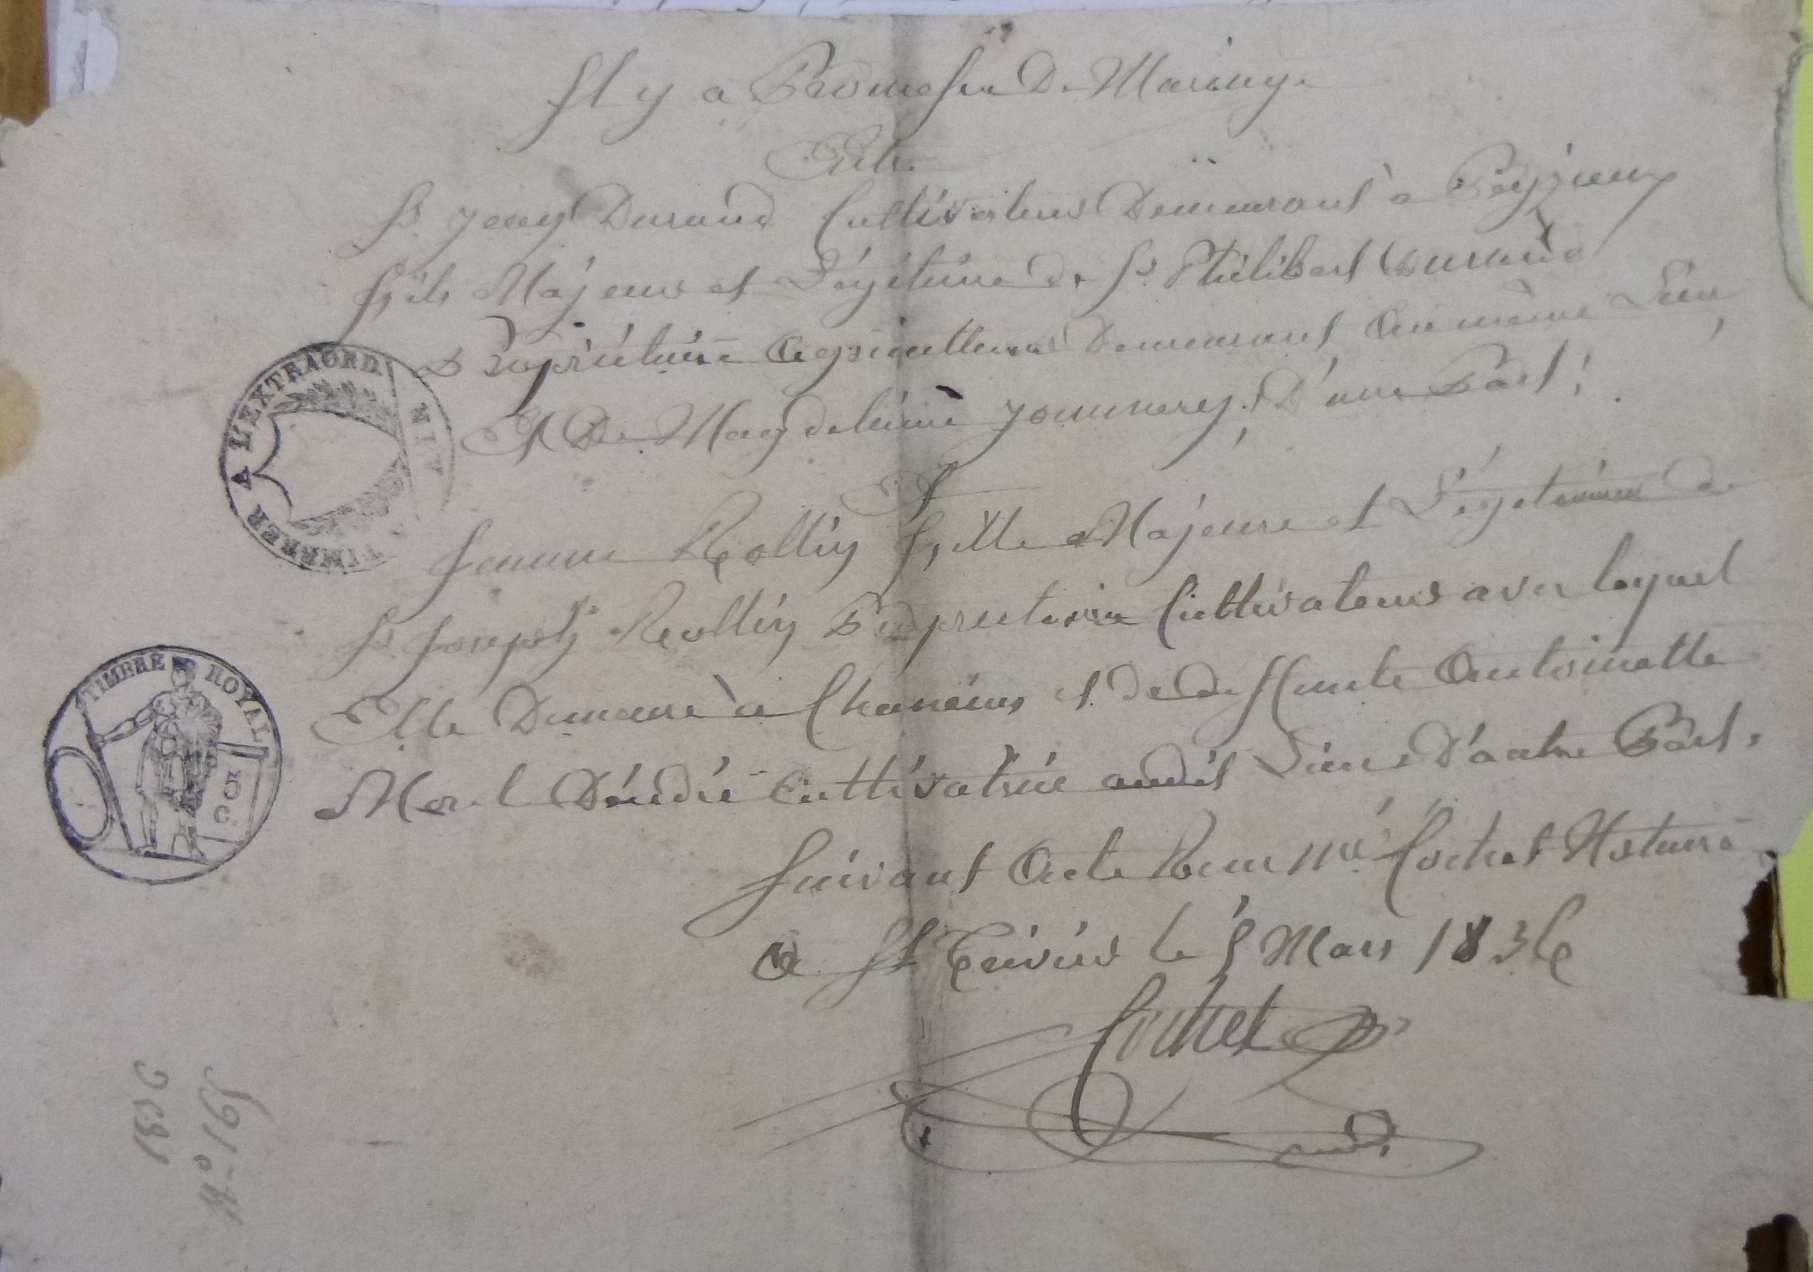 Il y a Promesse De Mariage
Entre
Sr Jean Durand Cultivateur Demeurant à Peyzieux
fils Majeur et Légitime de Sr Philibert Durand
Propriétaire Agriculteur Demeurant au même Lieu,
Et De Magdeleine Jommery, D'une Part;
Et
Jeanne Rollin fille Majeure et Légitime de
Sr Joseph Rollin Propriétaire Cultivateur avec lequel
Elle Demeure à Chaneins et de defunte Antoinette
Morel Décédée Cultivatrice audit Lieu D'autre Part.
Suivant Acte Reçu Me Cochet Notaire
A St Trivier le 5 Mars 1836
Cochet
TIMBRER A L'EXTRAORD.
AIN
TIMBRE ROYAL
35 C
No 165
1836